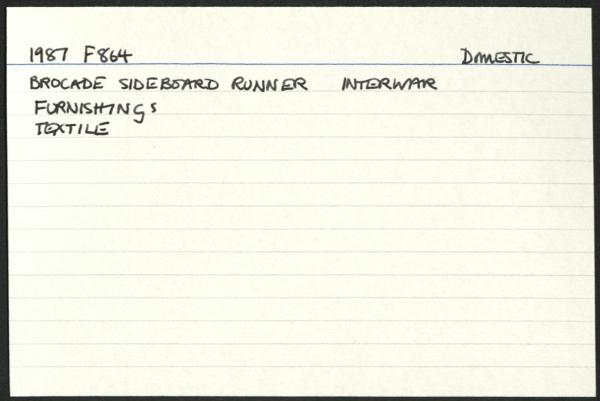 1987 F864 DOMESTIC
BROCADE SIDEBOARD RUNNER INTERWAR
FURNISHINGS
TEXTILE